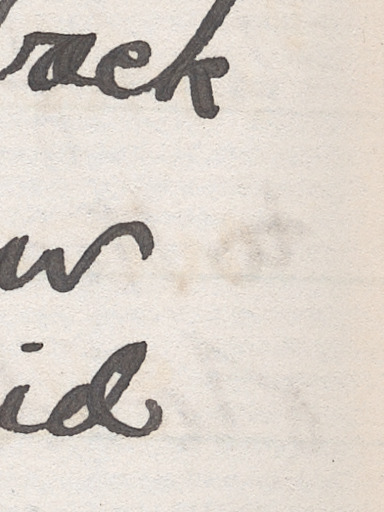 back
w
id